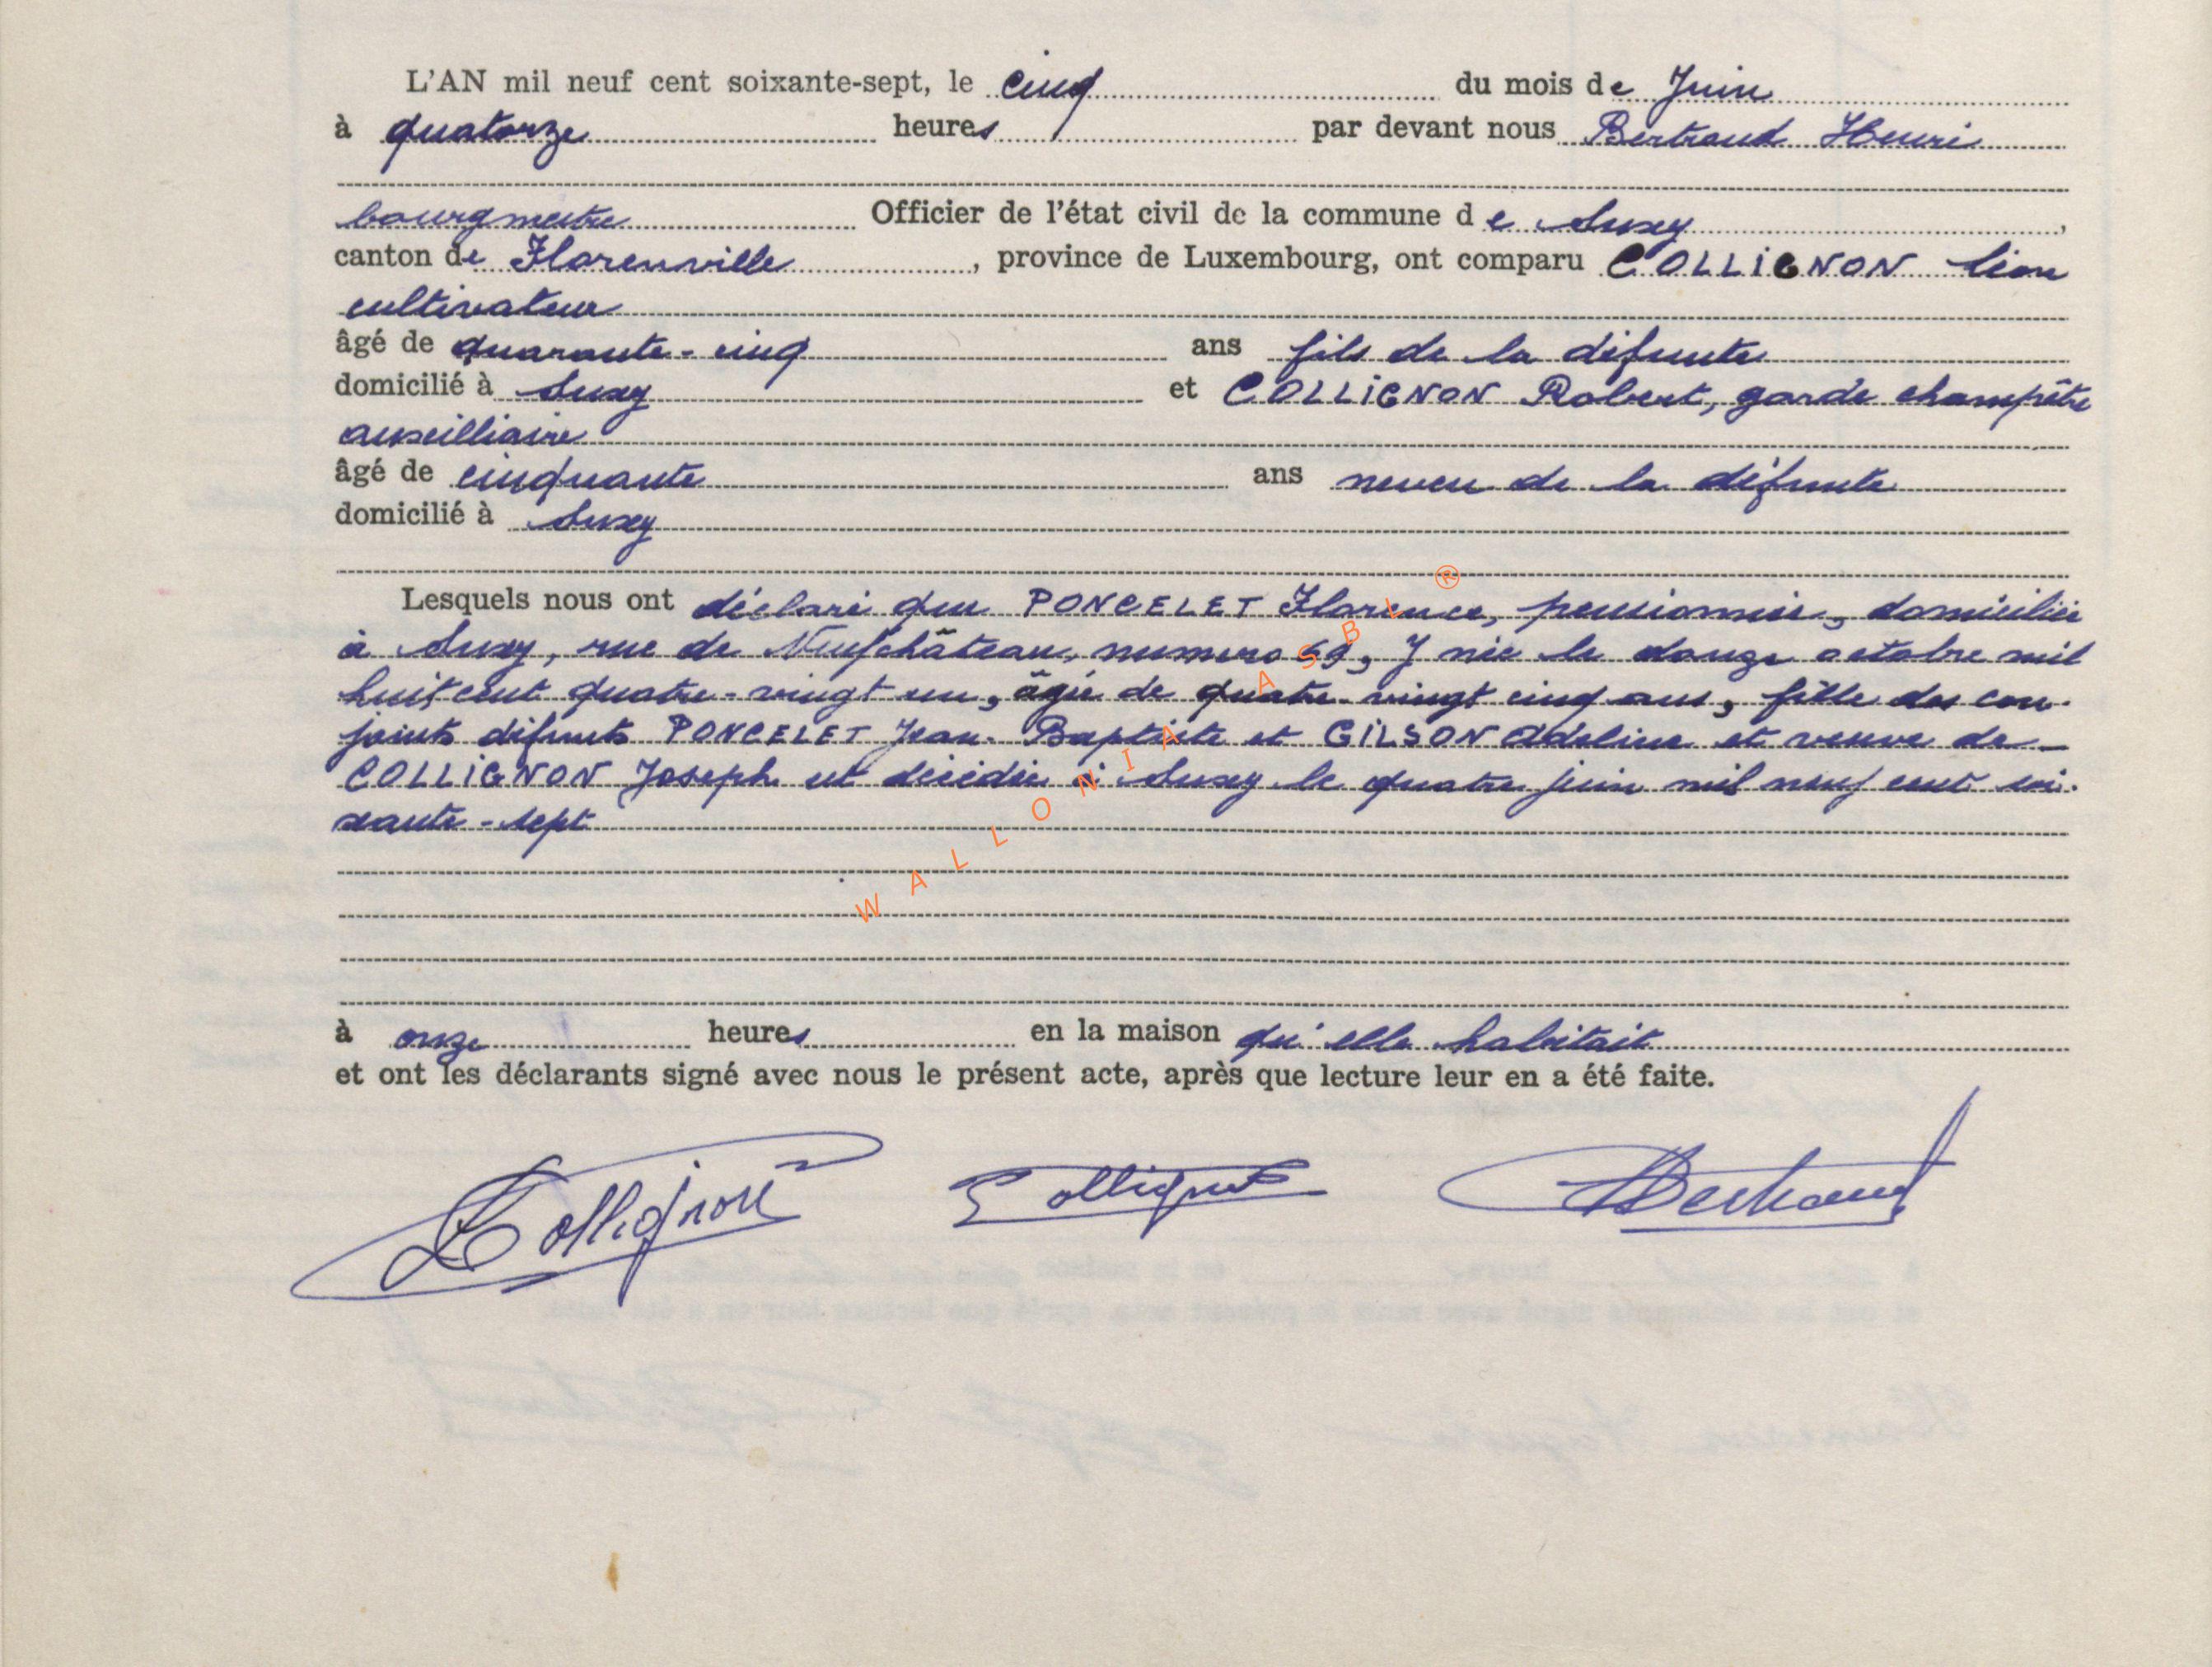 L'AN mil neuf cent soixante-sept, le cinq du mois de Juin
à quatorze heures par devant nous Bertrand Henri
bourgmestre Officier de l'état civil de la commune de Suxy,
canton de Florenville, province de Luxembourg, ont comparu COLLIGNON Léon
cultivateur
âgé de quarante-cinq ans fils de la défunte
domicilié à Suxy et COLLIGNON Robert, garde champêtre
auxilliaire
âgé de cinquante ans neveu de la défunte
domicilié à Suxy
Lesquels nous ont déclaré que PONCELET Florence, pensionnée, domiciliée
à Suxy, rue de Neufchâteau, numéro 69, y née le douze octobre mil
huit cent quatre-vingt un, âgée de quatre-vingt cinq ans, fille des con-
joints défunts PONCELET Jean-Baptiste et GILSON Adeline et veuve de
COLLIGNON Joseph est décédée à Suxy le quatre juin mil neuf cent soi-
xante-sept
WALLONIA ASBL ®
à onze heures en la maison qu'elle habitait
et ont les déclarants signé avec nous le présent acte, après que lecture leur en a été faite.
Collignon Collignon HBertrand